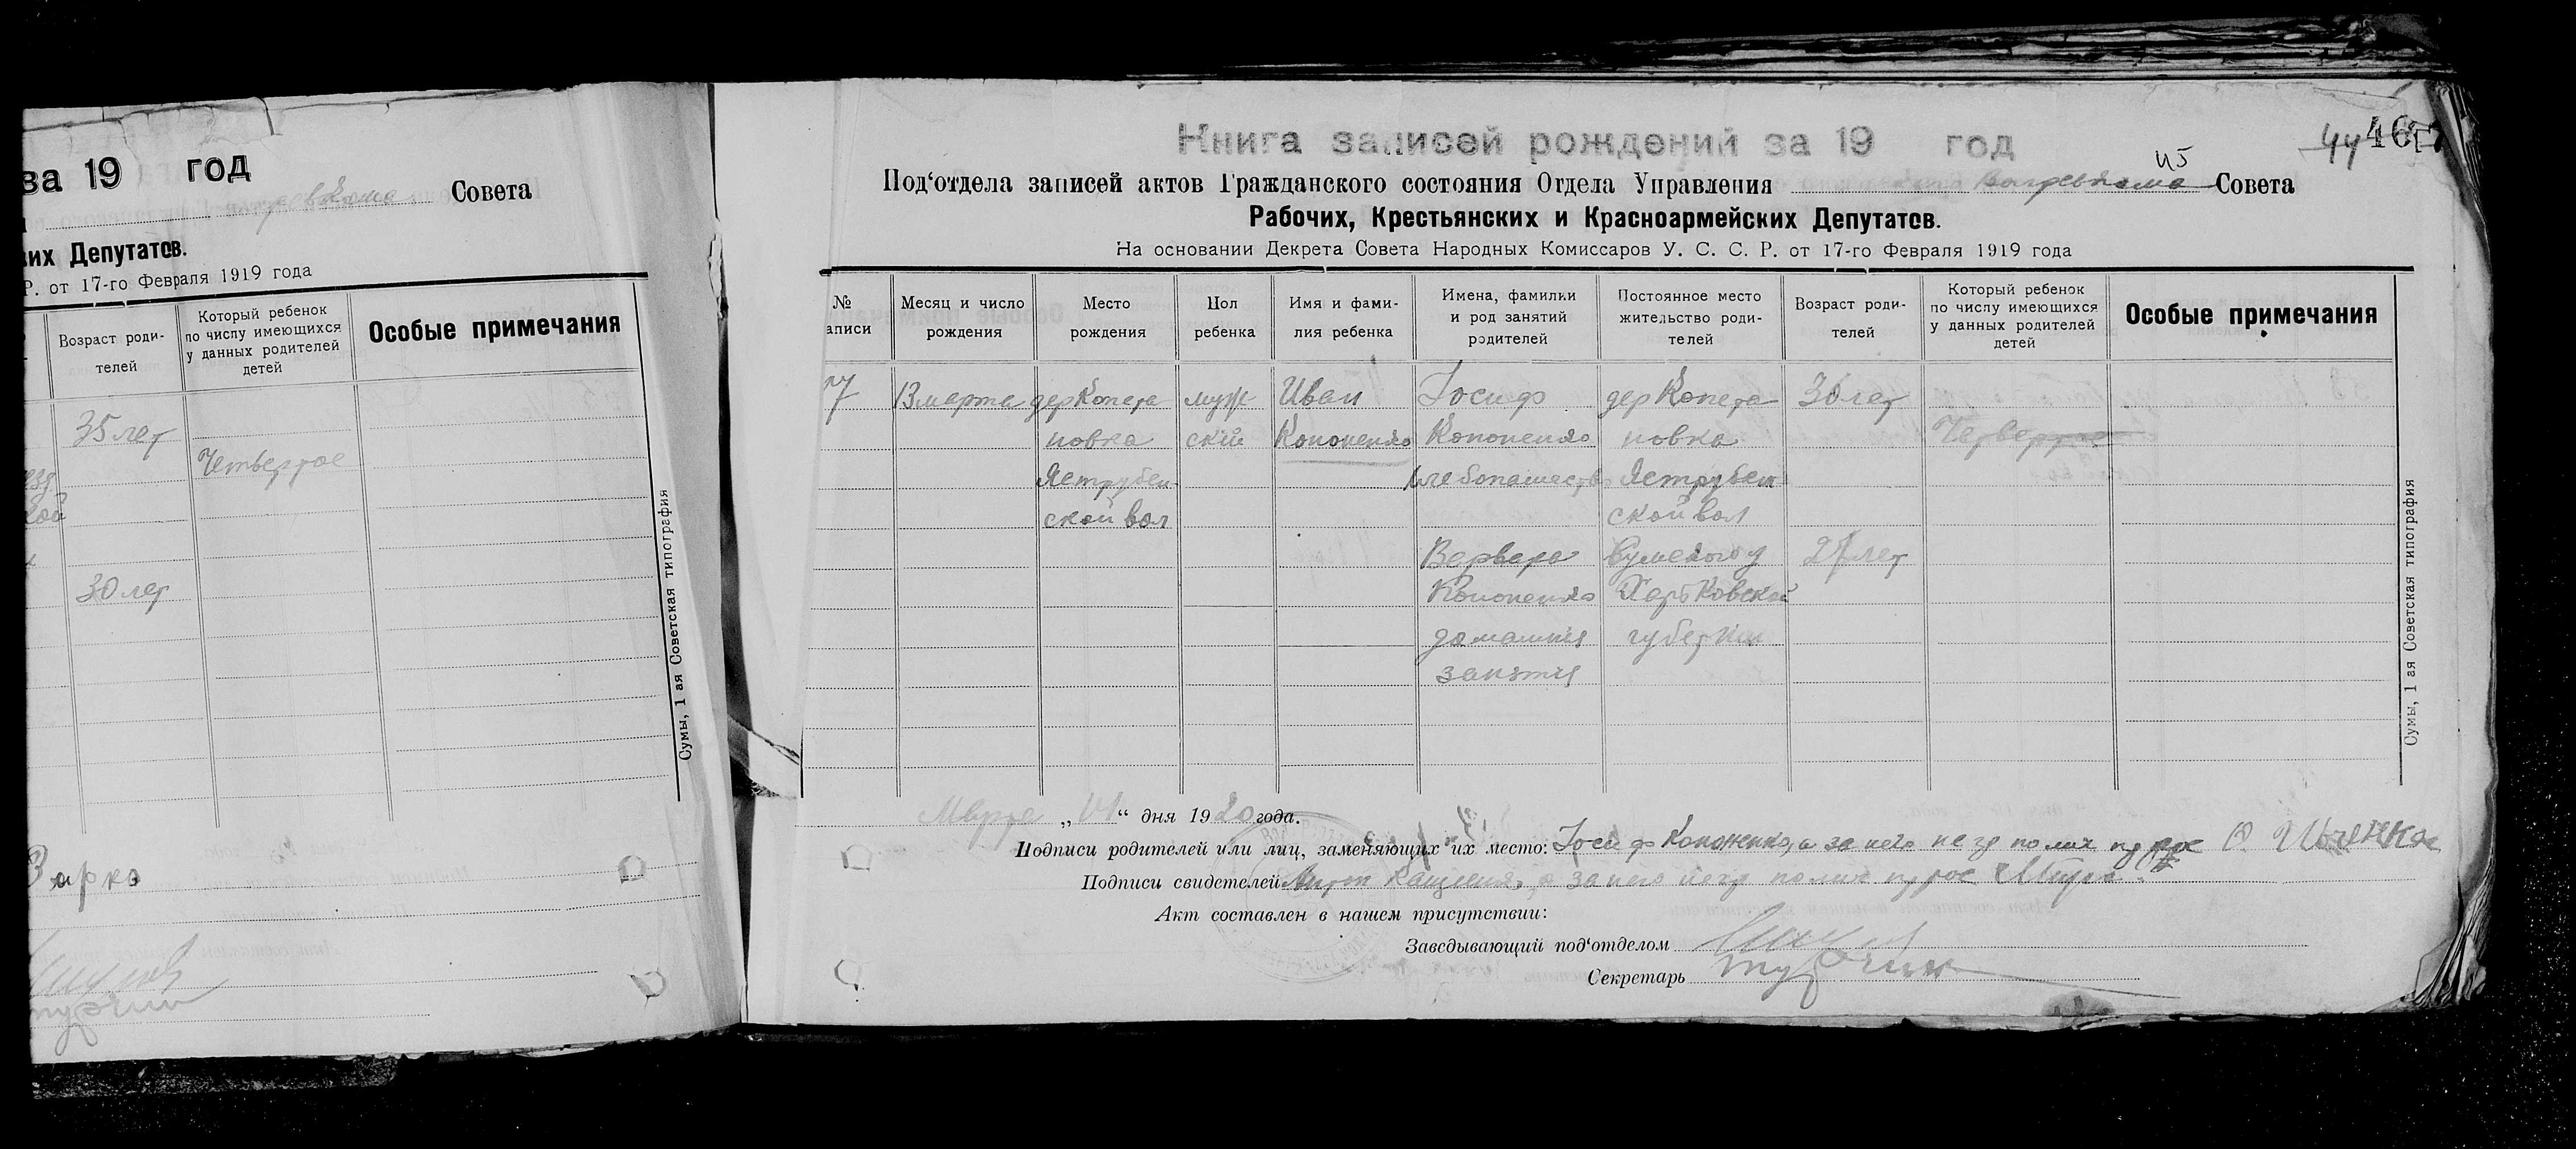 ва 19 год
Совета
их Депутатов.
Р. от 17-го Февраля 1919 года
Возраст роди-
телей
Который ребенок
по числу имеющихся
у данных родителей
детей
Особые примечания
35 лет
Четвертое
30 лет
Сумы, 1 ая Советская типография
Книга записей рождений за 19 год
44 46
45
Под‘отдела записей актов Гражданского состояния Отдела Управления Совета
Рабочих, Крестьянских и Красноармейских Депутатов.
На основании Декрета Совета Народных Комиссаров У. С. С. Р. от 17-го Февраля 1919 года
№
аписи
Месяц и число
рождения
Место
рождения
Пол
ребенка
Имя и фами-
лия ребенка
Имена, фамилии
и род занятий
родителей
Постоянное место
жительство роди-
телей
Возраст роди-
телей
Который ребенок
по числу имеющихся
у данных родителей
детей
Особые примечания
13 марта дер мужс Иван Іосиф дер 30 лет
новка скій Кононенко Кононенко новка Четвертое
ской вол ской вол
Варвара Сумского у 27 лет
Кононенко Харьковской
домашния губернии
занятия
Сумы, 1 ая Советская типография
Марта „ “ дня 1920 года.
Подписи родителей или лиц, заменяющих их место: Іосиф Кононенко, а за него
Подписи свидетелей а за него
Акт составлен в нашем присутствии:
Заведывающий под‘отделом
Секретарь